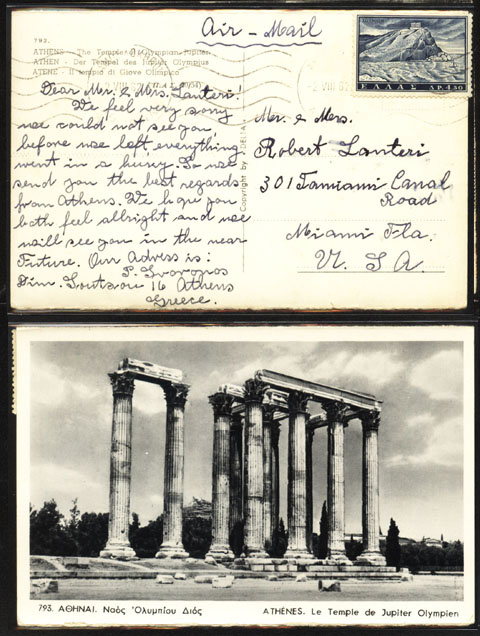 Air - Mail
793.
ATHENS - The Temple of Olympian Jupiter
ATHEN - Der Tempel des Jupiter Olympius
ATENE - Il tempio di Giove Olimpico
Dear Mr. & Mrs. Lanteri!
We feel very sorry
we could not see you,
before we left everything
went in a hurry. So we
send you the best regards
from Athens. We hope you
both feel allright and we
will see you in the near
Future. Our Adress is:
S. Svoronos
Dim. Soutsou 16 Athens
Greece.
Copyright by DELTA
ΕΛΛΑΣ ΔΡ. 4.50
Mr. & Mrs.
Robert Lanteri
301 Tamiami Canal
Road
Miami Fla.
U. S. A.
793. ΑΘΗΝΑΙ. Ναὸς Ὀλυμπίου Διός
ATHÈNES. Le Temple de Jupiter Olympien